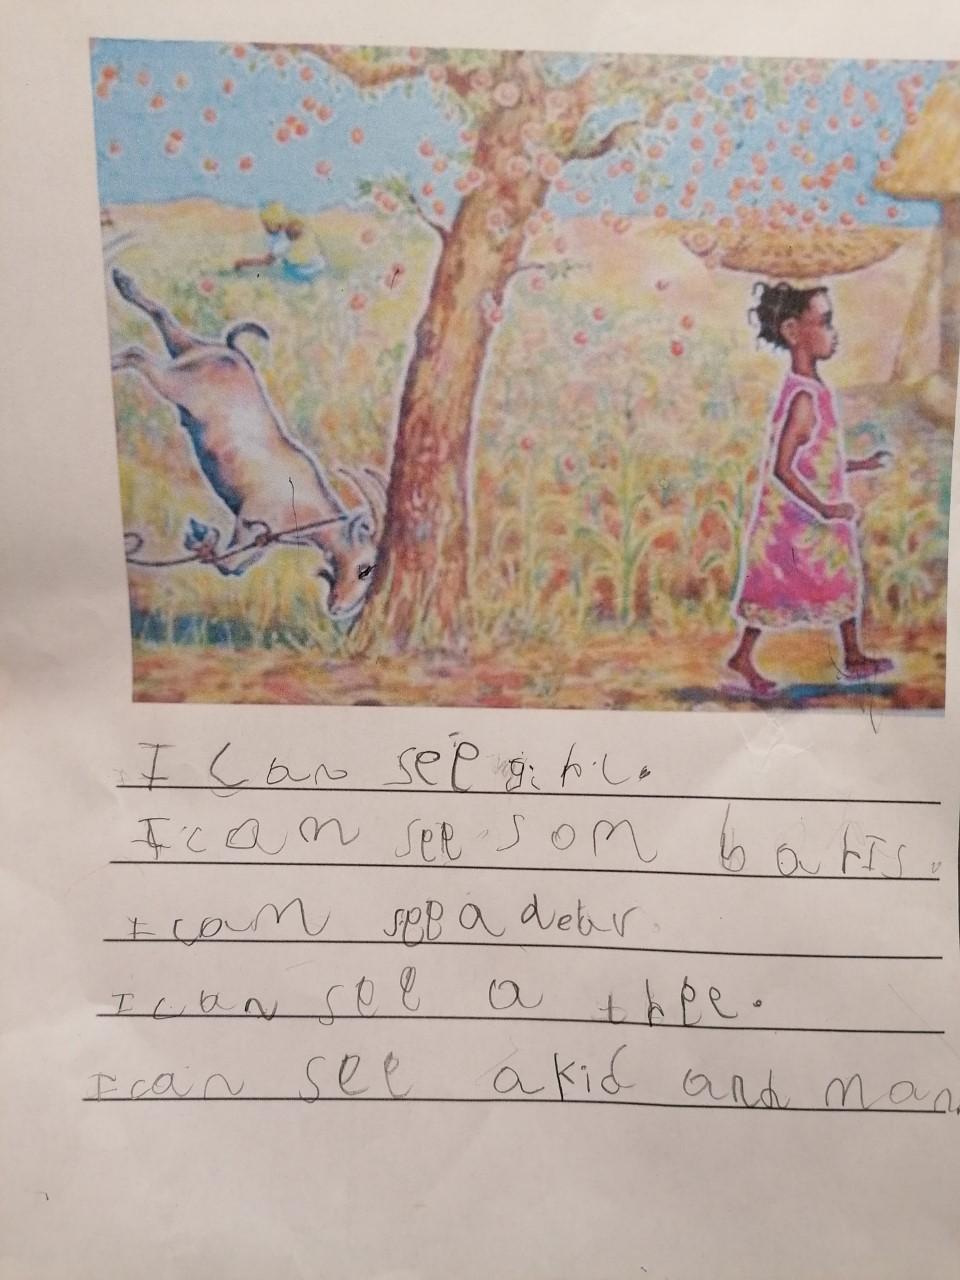 I can see girl.
I can see som baris.
I can see a detur.
I can see a tree.
I can see a kid and man.